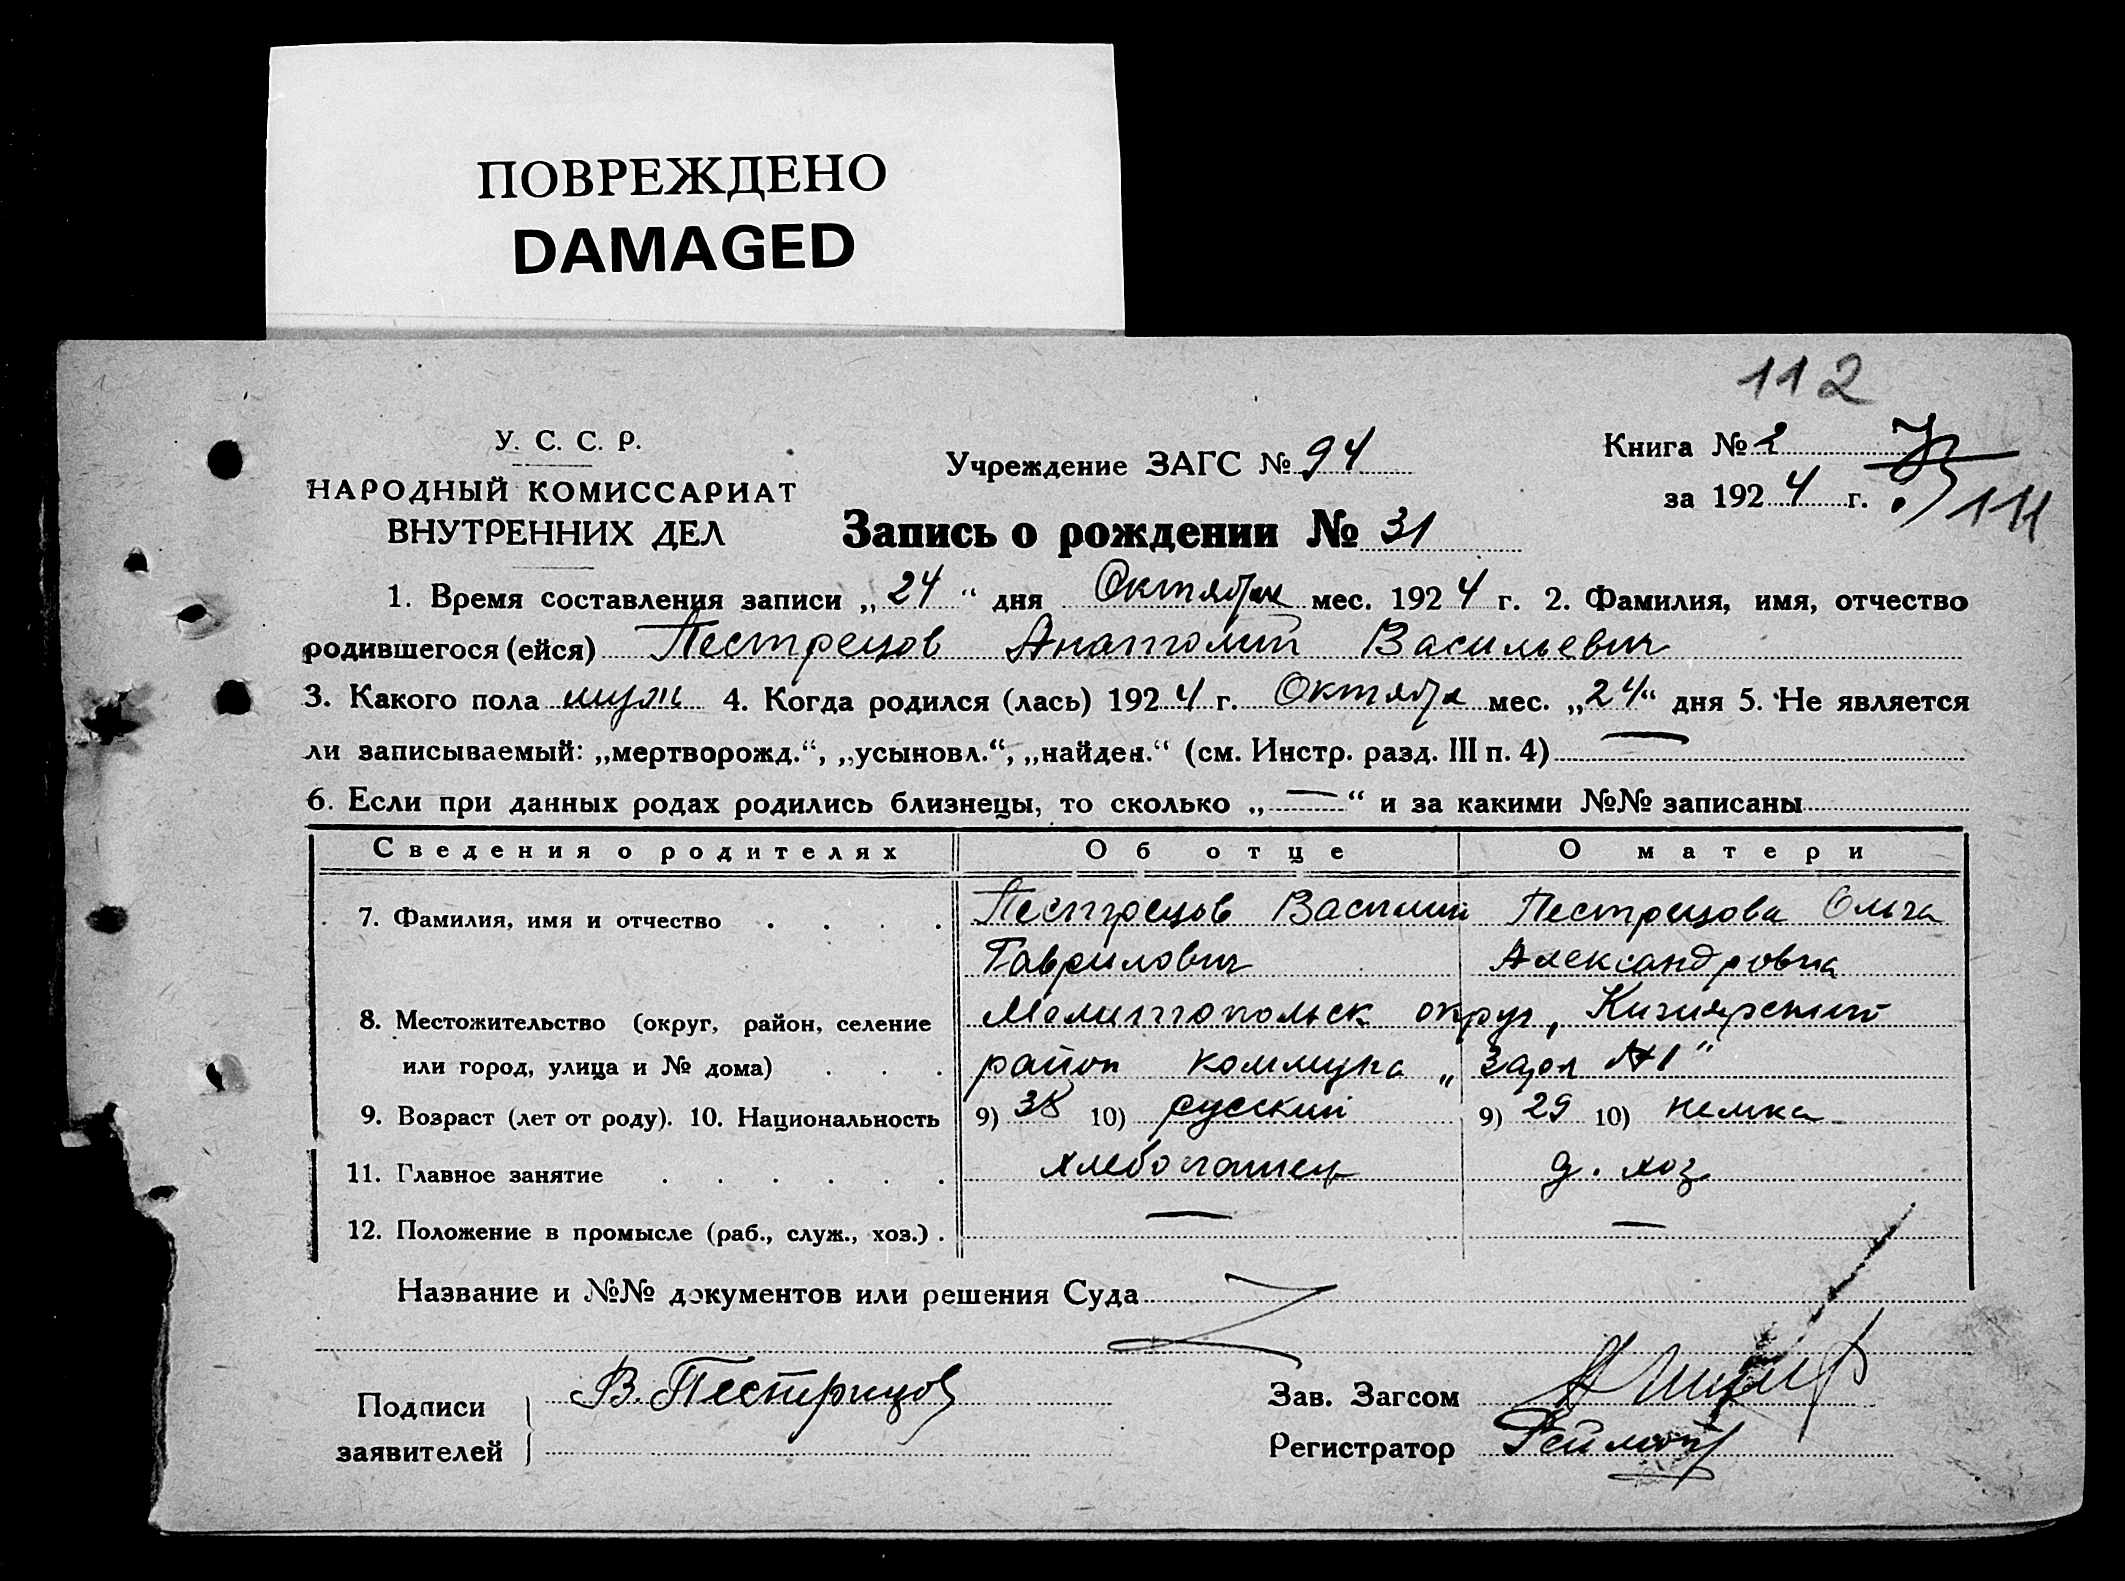 ПОВРЕЖДЕНО
DAMAGED
112
У. С. С. Р.
НАРОДНЫЙ КОМИССАРИАТ
ВНУТРЕННИХ ДЕЛ
Учреждение ЗАГС № 94
Книга № 2
за 1924 г.
111
Запись о рождении № 31
1. Время составления записи „24“ дня Октября мес. 1924 г. 2. Фамилия, имя, отчество
родившегося (ейся) Пестрецов Анатолий Васильевич
3. Какого пола муж 4. Когда родился (лась) 1924 г. Октября мес. „24“ дня 5. Не является
ли записываемый: „мертворожд.“, „усыновл.“, „найден.“ (см. Инстр. разд. III п. 4) —
6. Если при данных родах родились близнецы, то сколько „—“ и за какими №№ записаны
Сведения о родителях Об отце О матери
7. Фамилия, имя и отчество . . . . Пестрецов Василий Пестрецова Ольга
Гаврилович Александровна
8. Местожительство (округ, район, селение Мелитопольск округ, Кизиярский
или город, улица и № дома) . . . район коммуна „Заря №1“
9. Возраст (лет от роду). 10. Национальность 9) 38 10) русский 9) 29 10) немка
11. Главное занятие . . . . . . хлебопашец д. хоз
12. Положение в промысле (раб., служ., хоз.) . — —
Название и №№ документов или решения Суда
Подписи
заявителей
В. Пестрицов
Зав. Загсом
Регистратор